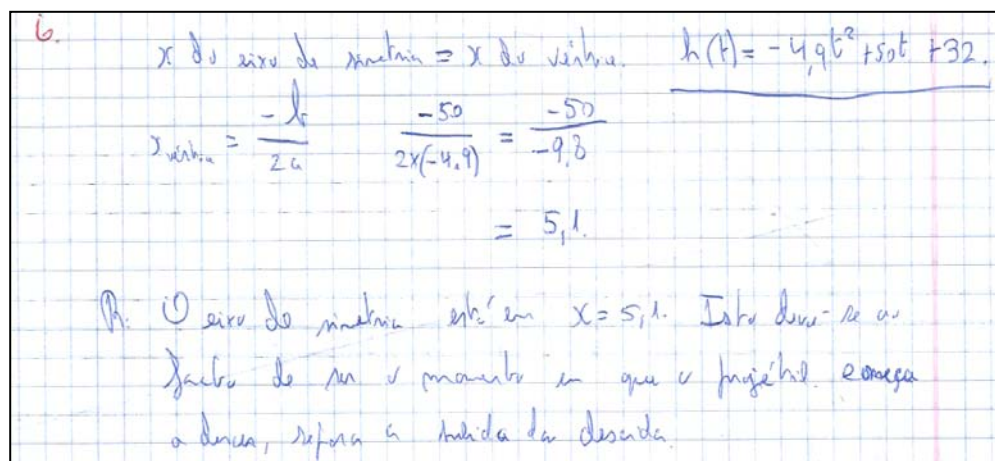 6.
x do eixo de simetria = x do vértice. h(t) = -4,9t² + 50t + 32.
x vértice = -b/2a   -50/2x(-4,9) = -50/-9,8
= 5,1.
R: O eixo de simetria está em x = 5,1. Isto deve-se ao
facto de ser o momento em que o projétil começa
a descer, separa a subida da descida.